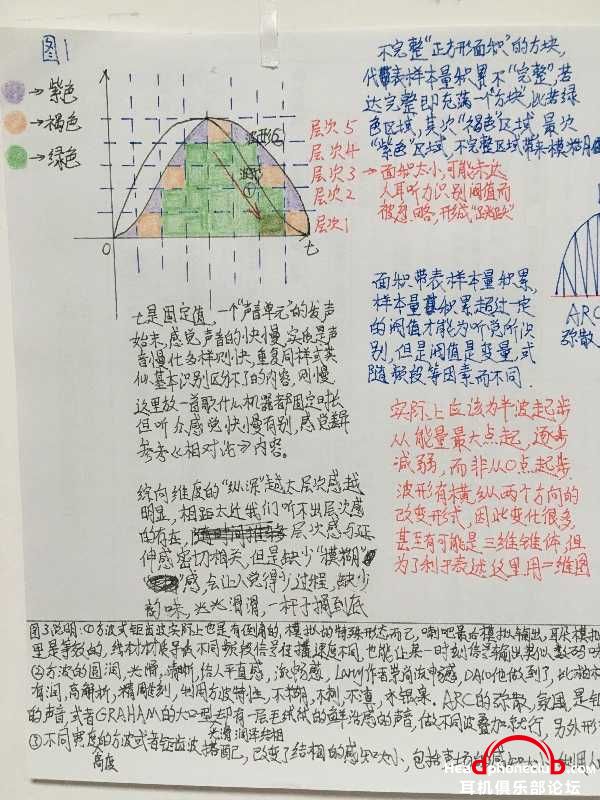 图1
→紫色
→褐色
→绿色
层次5
层次4
层次3
层次2
层次1
波形
①
0
t
不完整“正方形面积”的方块,
代表样本量积累不“完整”,若
达完整即充满一个“方块”,比若绿
色区域,其次“褐色”区域,最次
“紫色”区域,不完整区域带来模糊
→面积太小,可能未达
人耳听力识别阈值而
被忽略,形成“跳跃”
面积带表样本量积累,
样本量积累超过一定
的阈值才能为听觉所识
别,但是阈值是变量,或
随频段等因素而不同.
ARC
弥散
实际上应该为半波起步
从能量最大点起,逐步
减弱,而非从0点起步.
波形有横,纵两个方向的
改变形式,因此变化很多,
甚至有可能是三维锥体,但
为了利于表述这里用二维图
t是固定值,一个“声音单元”的发声
始末,感觉声音的快慢,实质是声
音慢什么样则快,重复同样或类
似,基本识别区分不了的内容,则慢.
这里放一首歌什么机器都固定时长
但听众感觉快慢有别,感觉差异
参考《相对论》内容。
纵向维度的“纵深”越大层次感越
明显,相距太近我们听不出层次感
的存在,层次感与延
伸感密切相关,但是缺少“模糊”
感,会让人觉得少了过程,缺少
韵味,光光滑滑,一杆子捅到底
图3说明:①方波或钜齿波实际上也是有倒角的,模拟的特殊形态而已,喇叭最后模拟输出,耳朵模拟
里是等效的,线材材质导致不同频段信号在传播速度不同,也能让某一时刻信号输出类似数码味
②方波的圆润,光滑,清晰,给人平直感,流畅感,
有润,高解析,精雕刻,利用方波特性,不糊,不刺,不薄,水银泉. ARC的弥散,氛围,是钜
的声音,或者GRAHAM的大口型却有一层毛绒绒的鲜活感的声音,做不同波叠加就行,另外形
光滑润连结相
③不同高度的方波或者钜齿波搭配,改变了结相的感知大小,包括声场的感知大小,利用人
高度
Headphoneclub.com
耳机俱乐部论坛